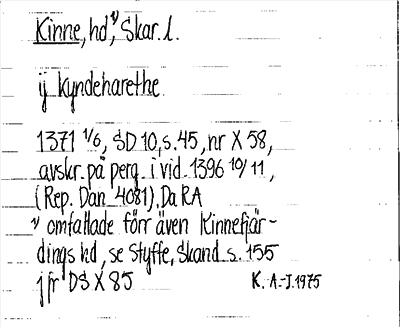 Kinne, hd,¹⁾ Skar. l.
ij Kyndeharethe.
1371 1/6, SD 10, s. 45, nr X 58,
avskr. på perg. i vid. 1396 10/11,
(Rep. Dan 4081). Da RA
¹⁾ omfattade förr även Kinnefjär-
dings hd, se Styffe, Skand s. 155
jfr DS X 85
K. A.-J. 1975